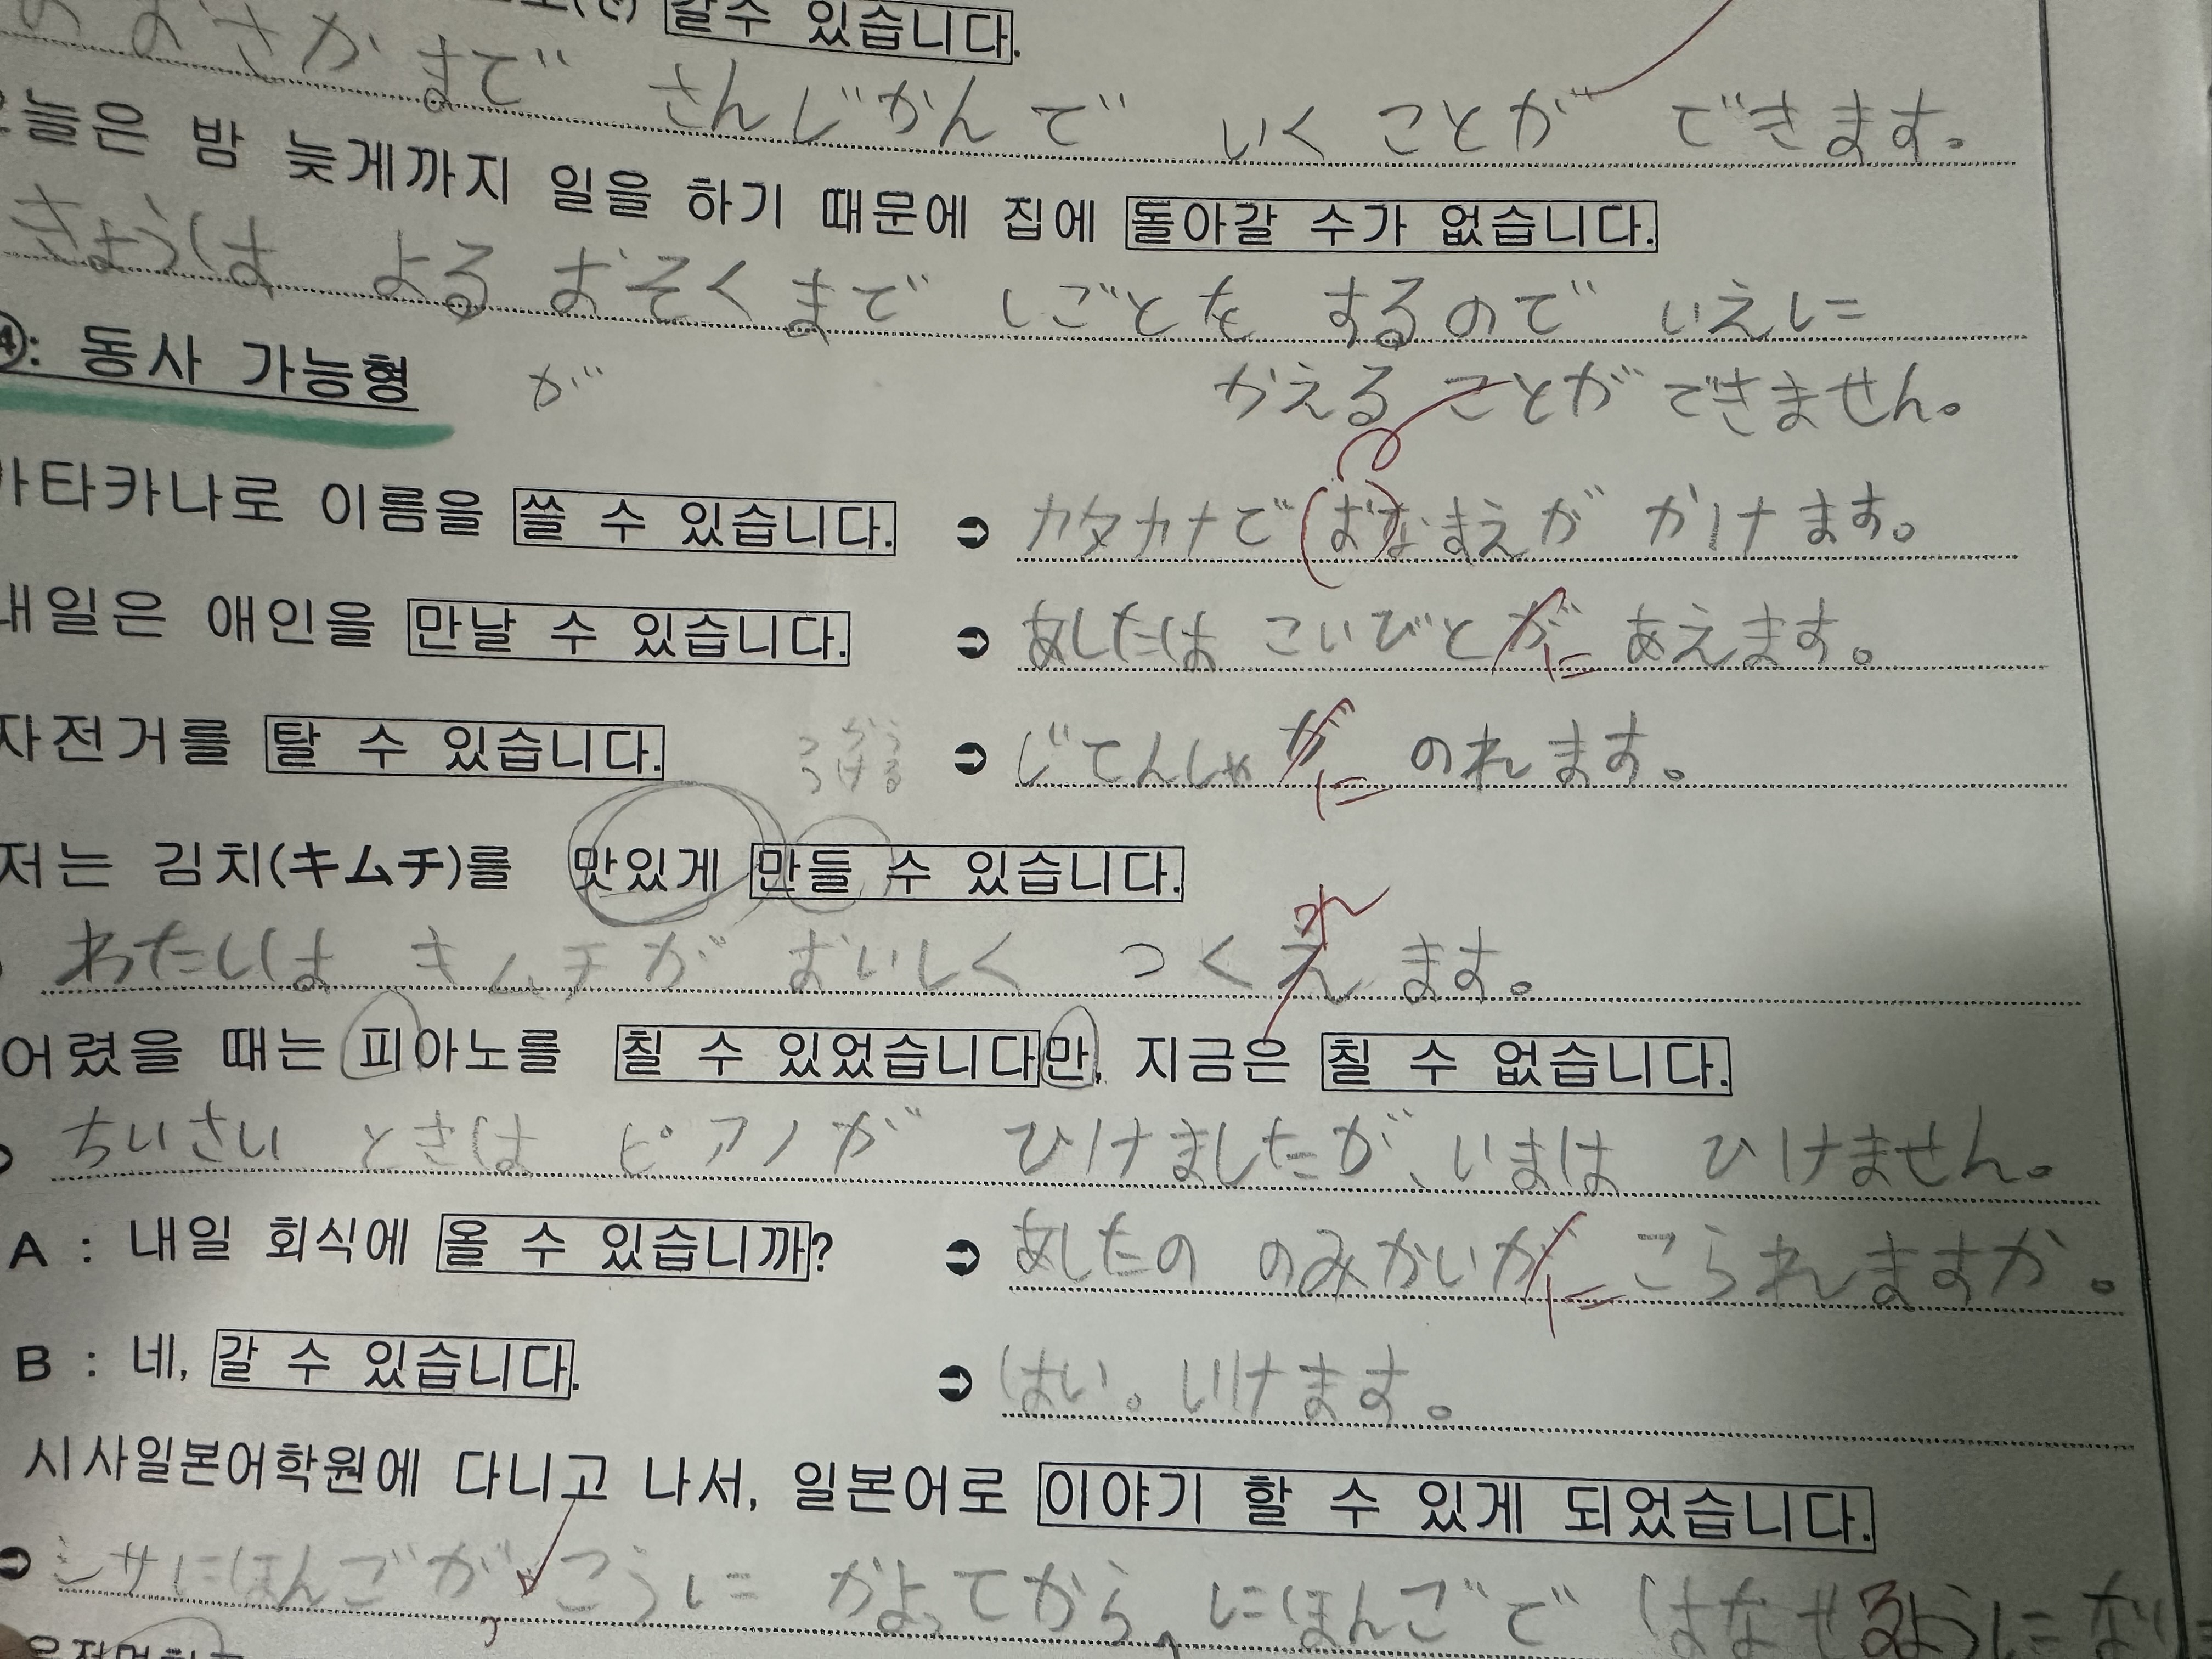 갈수 있습니다.
おおさかまで さんじかんで いくことが できます。
오늘은 밤 늦게까지 일을 하기 때문에 집에 돌아갈 수가 없습니다.
きょうは よる おそくまで しごとを するので いえに
かえる ことが できません。
④: 동사 가능형
が
카타카나로 이름을 쓸 수 있습니다. ➲ カタカナで(お)なまえが かけます。
내일은 애인을 만날 수 있습니다. ➲ あしたは こいびとが に あえます。
자전거를 탈 수 있습니다. ➲ じてんしゃが に のれます。
저는 김치(キムチ)를 맛있게 만들 수 있습니다.
れ
わたしは キムチが おいしく つくえます。
어렸을 때는 피아노를 칠 수 있었습니다만, 지금은 칠 수 없습니다.
ちいさい ときは ピアノが ひけましたが、いまは ひけません。
A : 내일 회식에 올 수 있습니까? ➲ あしたの のみかいが に こられますか。
B : 네, 갈 수 있습니다. ➲ はい。いけます。
시사일본어학원에 다니고 나서, 일본어로 이야기 할 수 있게 되었습니다.
➲ シサにほんごがっこうに かよってから、にほんごで はなせるように なり